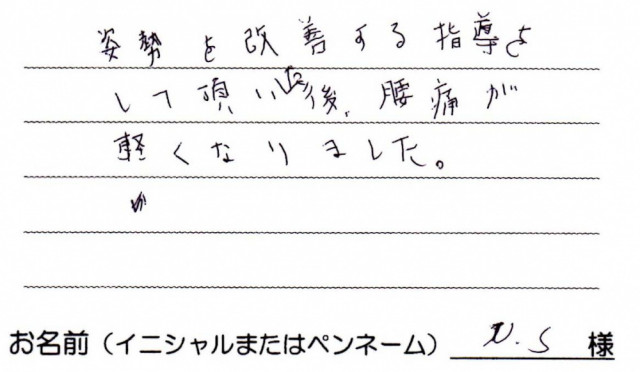 姿勢を改善する指導を
して頂いた後、腰痛が
軽くなりました。
お名前(イニシャルまたはペンネーム) N.S 様